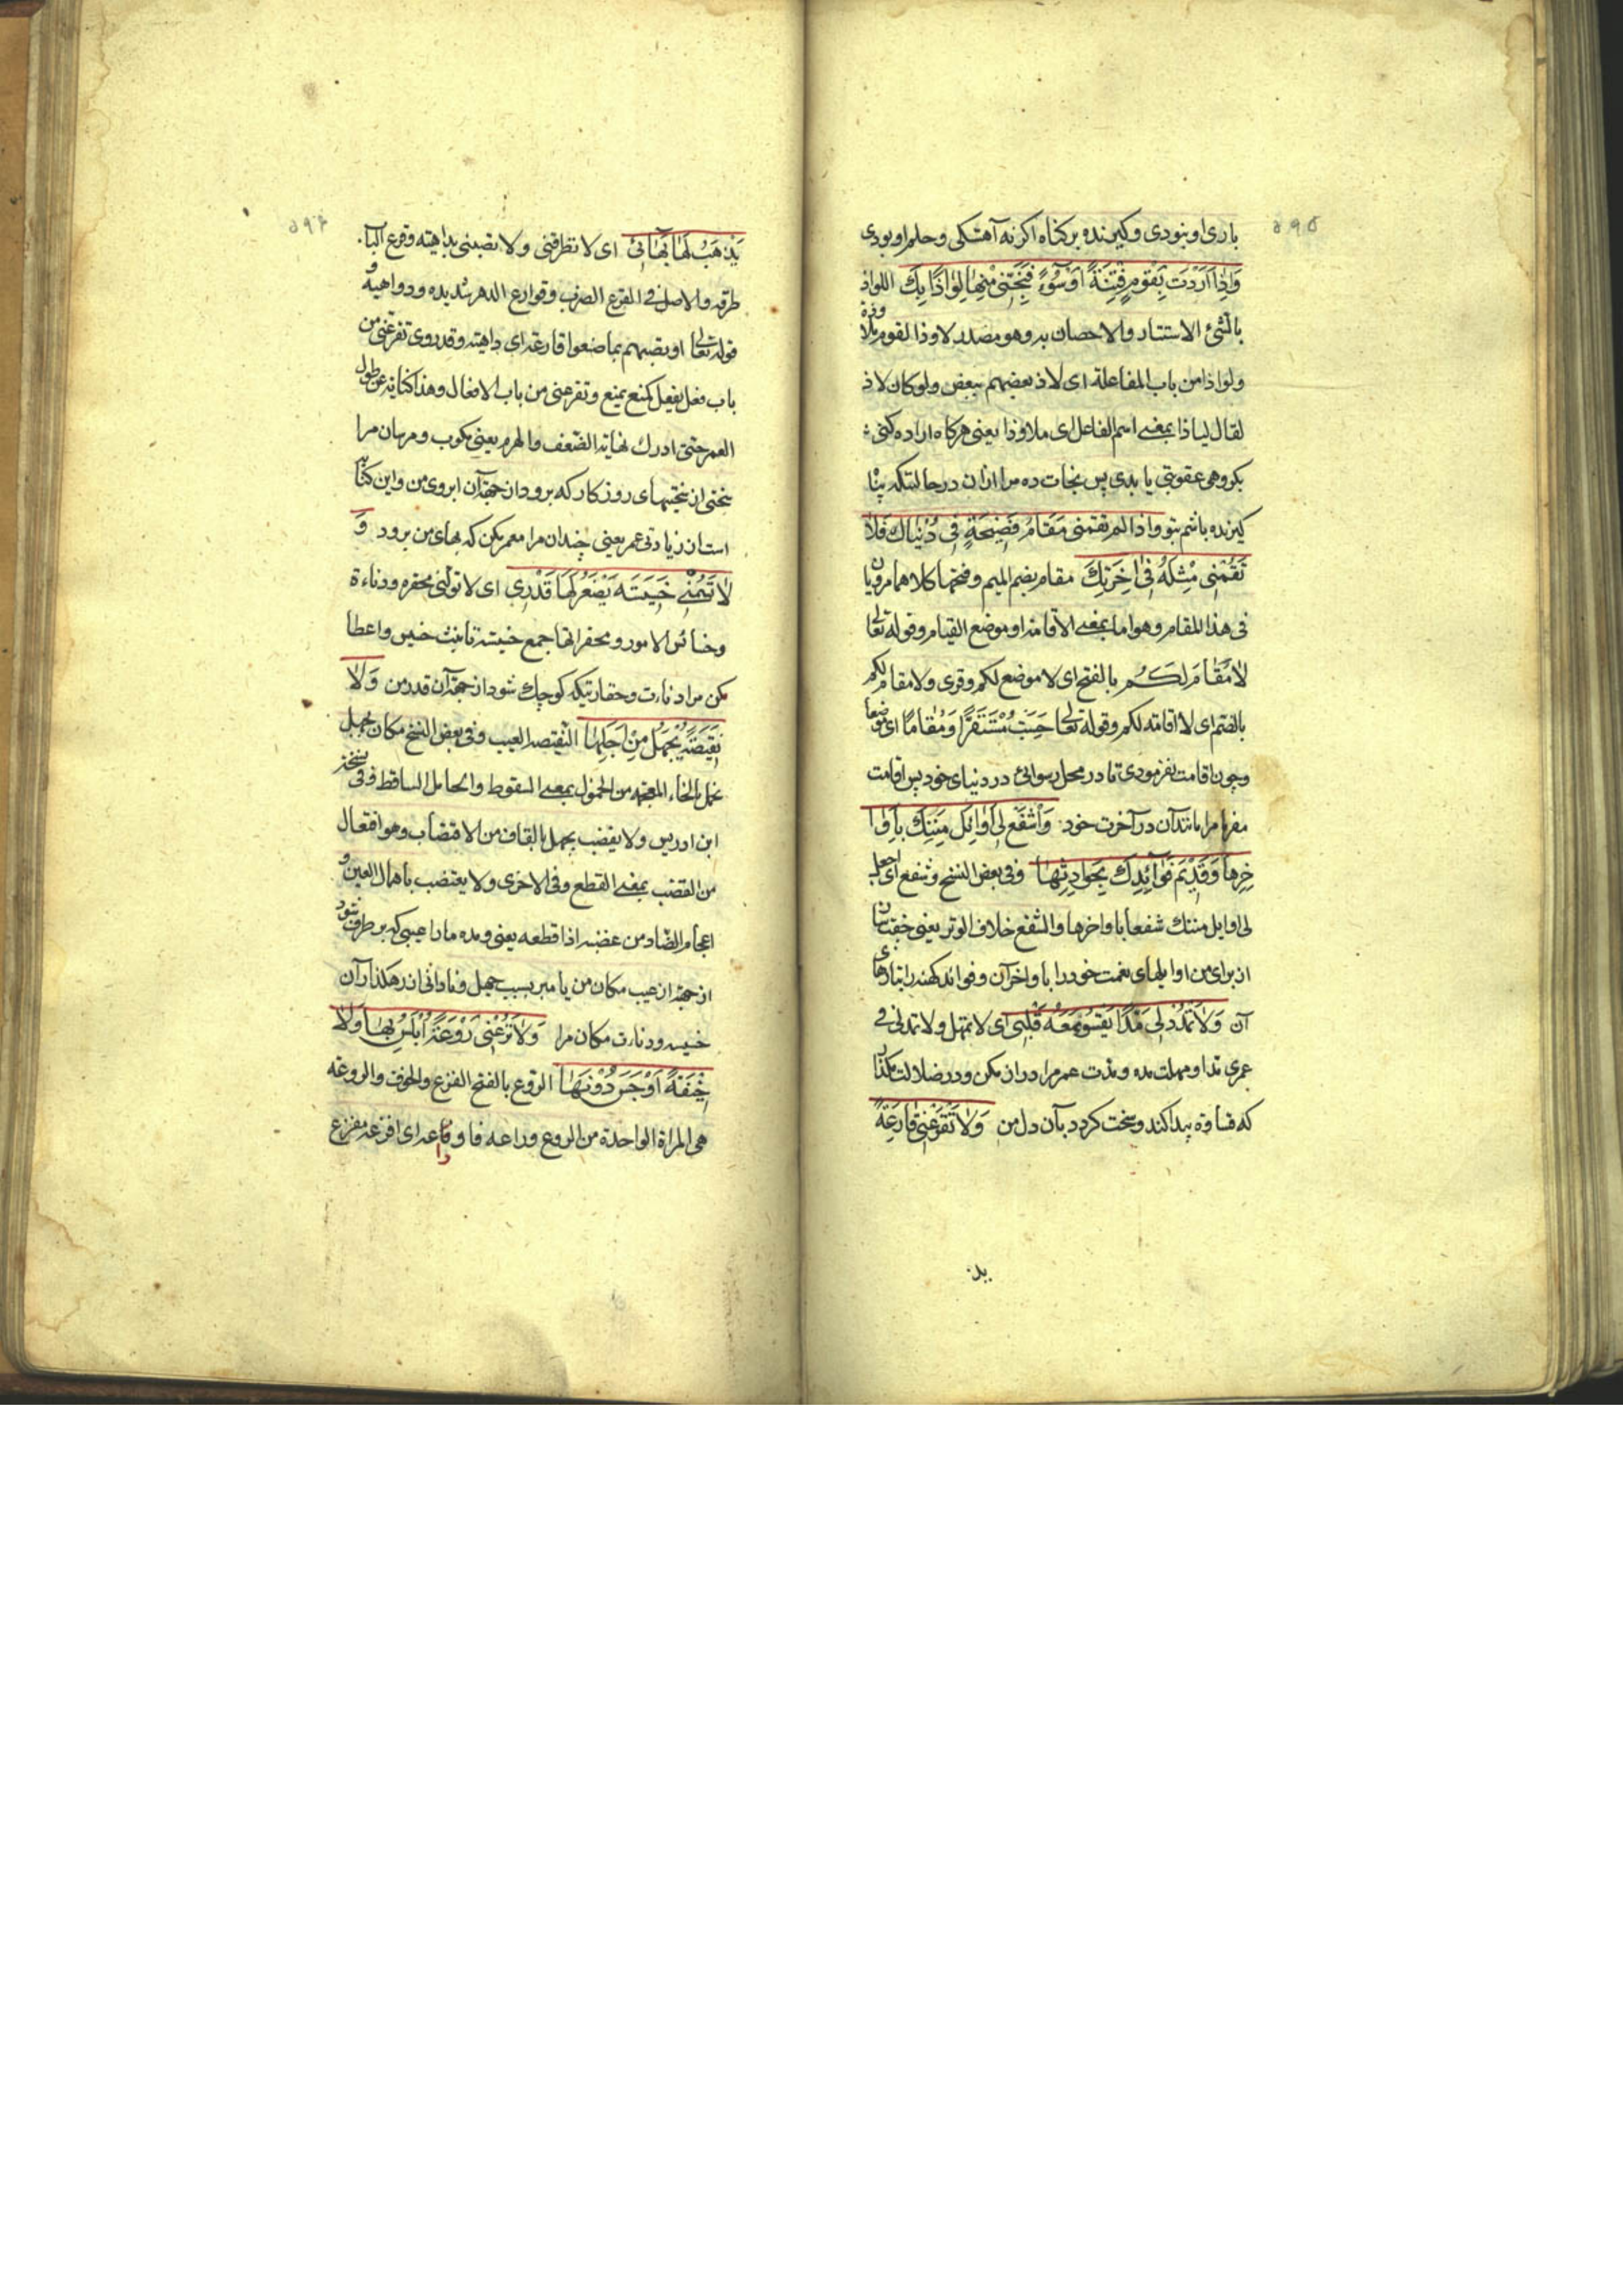 ۵۹۵
باری او بنودی و کیرنده بر کناه اکر نه آهستکی و حلم او بودی
وَاِذَا اَرَدْتَ بِقَوْمٍ فِتْنَةً اَوْ سُوْءً فَنَجِّنِى مِنْهَا لِوَاذًا بِكَ اللواذ
بالشئ الاستتار والاحصان به وهو مصدر لاوذ القوم ملاوذة
ولواذا من باب المفاعلة اى لاذ بعضهم ببعض ولو كان لاذ
لقال لياذا بمعنى اسم الفاعل اى ملاوذا يعنى هركاه اراده كنى
بكروهى عقوبتى يا بدى پس نجات ده مرا ازان در حالتيكه پناه
كيرنده باشم بتو واذا لم تقمنى مَقَامَ فَضِيحَةٍ فِى دُنْيَاكَ فَلَا
تَقُمْنِى مِثْلَهُ فِى اٰخِرَتِكَ مقام بضم الميم وفتحها كلاهما مرويان
فى هذا المقام وهو اما بمعنى الاقامة او موضع القيام وقوله تعالى
لَا مُقَامَ لَكُم بالفتح اى لا موضع لكم وقرى ولا مقام لكم
بالضم اى لا اقامة لكم وقوله تعالى حَسُنَتْ مُسْتَقَرًّا وَمُقَامًا اى موضعا
وچون اقامت نفرمودى تا در محل رسوائى در دنياى خود پس اقامت
مفرما مرا مانند آن در آخرت خود وَاشْفَعْ لِى اَوَائِلَ مِنَنِكَ بِاَوَا
خِرِهَا وَقَدِيْمَ فَوَائِدِكَ بِحَوَادِثِهَا وفى بعض النسخ وشفع اى اجعل
لى اوايل مننك شفعا باواخرها والشفع خلاف الوتر يعنى جفت كن
از براى من اوايلهاى نعمت خود را باواخر آن وفوائد كهنه را بتازهاى
آن وَلَا تَمْدُدْ لِى مَدًّا يَقْسُو مَعَهُ قَلْبِى اى لا تمهل ولا تمدلى فى
عمرى مدا ومهلت مده ومدت عمر مرا دراز مكن ودر ضلالت مكذار
كه قساوة پيدا كند وسخت كردد بآن دل من وَلَا تَقْرَعْنِى قَارِعَةً
يذ
۵۹۶
يَذْهَبُ لَهَا بَهَائِى اى لا تطرقنى ولا تصبنى بداهية وقرع الباب
طرقه والاصل فى القرع الضرب وقوارع الدهر شديده ودواهيه و
قوله تعالى او يصيبهم بما صنعوا قارعة اى داهية وقد روى تقرعنى من
باب فعل يفعل كمنع يمنع وتقرعنى من باب الافعال وهذا كناية عن طول
العمر حتى ادرك نهاية الضعف والهرم يعنى مكوب ومرسان مرا
سختى از سختيهاى روزكار كه برود از جهة آن ابروى من واين كنايه
است از زيادتى عمر يعنى چندان مرا معمر مكن كه بهاى من برود وَ
لَا تَسُمْنِى خَسِيْسَةً يَصْغُرُ لَهَا قَدْرِى اى لا تولنى محقرة ودناءة
وخسائس الامور ومحقراتها جمع خسيسة تانيث خسيس واعطا
مكن مرا دناءت وحقارتيكه كوچك شود از جهة آن قدر من وَلَا
نَقِيْصَةً يُجْهَلُ مِنْ اَجْلِهَا النقيصة العيب وفى بعض النسخ مكان يجهل
يخمل بالخاء المعجمة من الخمول بمعنى السقوط والخامل الساقط وفى نسخة
ابن ادريس ولا يقضب يحمل بالقاف من الاقتضاب وهو افتعال
من القضب بمعنى القطع وفى الاخرى ولا يعتضب باهمال العين و
اعجام الضاد من عضبه اذا قطعه يعنى ومده مارا عيبى كه بر طرف شود
از جهة از عيب مكان من يا مبر بسبب جهل ونادانى از رهكذار آن
خسيسه ودناءت مكان مرا وَلَا تَرُعْنِى رَوْعَةً اُبْلِسُ بِهَا وَلَا
خِيْفَةً اَوْجَسُ دُوْنَهَا الروع بالفتح الفزع والخوف والروعة
هى المراة الواحدة من الروع وراعه فارتاعه اى افزعه ففزع
را